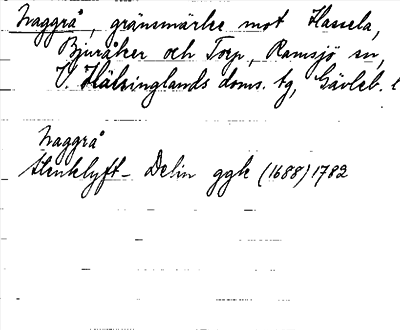 Naggrå, gränsmärke mot Hassela,
Bjuråker och Torp, Ramsjö sn,
V. Hälsinglands doms. tg, Gävleb. l
Naggrå
Stenklyft - Delin ggk (1688) 1782